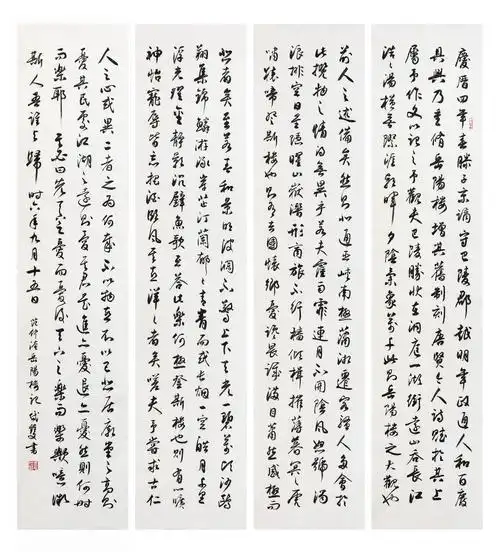 慶曆四年春滕子京謫守巴陵郡越明年政通人和百廢
具興乃重修岳陽樓增其舊制刻唐賢今人詩賦於其上
屬予作文以記之予觀夫巴陵勝狀在洞庭一湖銜遠山吞長江
浩浩湯湯橫無際涯朝暉夕陰氣象萬千此則岳陽樓之大觀也
前人之述備矣然則北通巫峽南極瀟湘遷客騷人多會於
此攬物之情得無異乎若夫霪雨霏霏連月不開陰風怒號濁
浪排空日星隱曜山岳潛形商旅不行檣傾楫摧薄暮冥冥虎
嘯猿啼登斯樓也則有去國懷鄉憂讒畏譏滿目蕭然感極而
悲者矣至若春和景明波瀾不驚上下天光一碧萬頃沙鷗
翔集錦鱗游泳岸芷汀蘭郁郁青青而或長煙一空皓月千里
浮光躍金靜影沉璧漁歌互答此樂何極登斯樓也則有心曠
神怡寵辱皆忘把酒臨風其喜洋洋者矣嗟夫予嘗求古仁
人之心或異二者之為何哉不以物喜不以己悲居廟堂之高則
憂其民處江湖之遠則憂其君是進亦憂退亦憂然則何時
而樂耶其必曰先天下之憂而憂後天下之樂而樂歟噫微
斯人吾誰與歸時六年九月十五日
范仲淹岳陽樓記 書